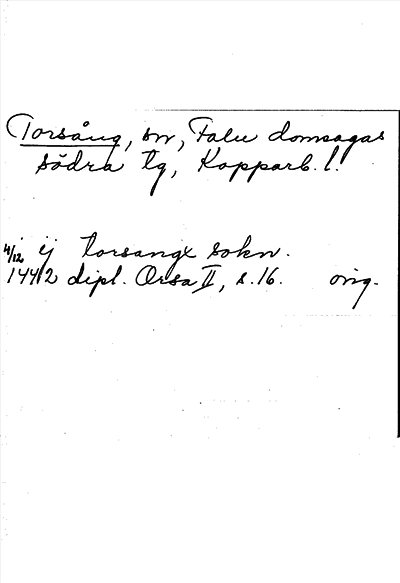 Torsång, sn, Falu domsagas
södra tg, Kopparb. l.
4/12 ij torsangx sokn.
1442 dipl. Orsa II, s. 16. orig.